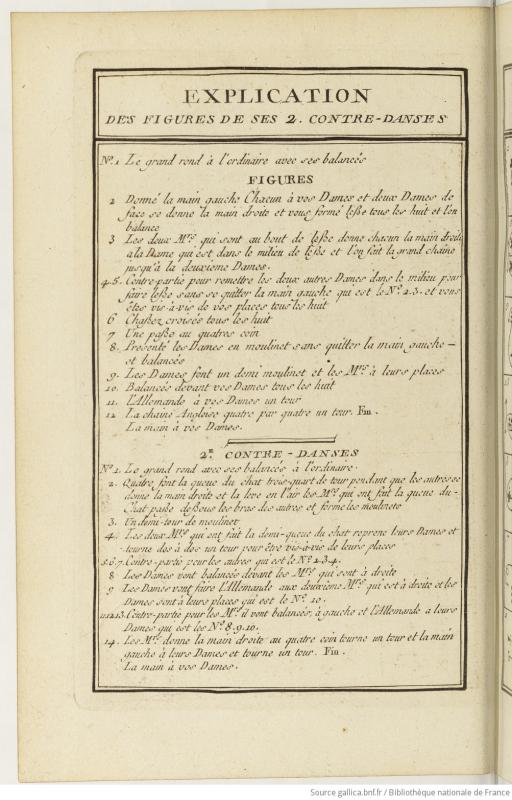 EXPLICATION
DES FIGURES DE SES 2. CONTRE-DANSES
Nº. 1 Le grand rond à l'ordinaire avec ses balancés
FIGURES
2 Donné la main gauche Chacun à vos Dames et deux Dames de
face se donne la main droite et vous formé lesse tous les huit et l'on
balance
3 Les deux Mrs. qui sont au bout de lesse donne chacun la main droite
à la Dame qui est dans le milieu de lesse et l'on fait la grand chaîne
jusqu'à la deuxieme Dames.
4.5. Contre-partie pour remettre les deux autres Dames dans le milieu pour
faire lesse sans se quitter la main gauche qui est le Nº. 2.3. et vous
êtes vis-à-vis de vos places tous les huit
6 Chassez croisés tous les huit
7 Une passe au quatres coin
8. Présenté les Dames en moulinet sans quitter la main gauche —
et balancés
9. Les Dames font un demi moulinet et les Mrs. à leurs places
10. Balancés devant vos Dames tous les huit
11. l'Allemande à vos Dames un tour
12 La chaîne Angloise quatre par quatre un tour. Fin.
La main à vos Dames.
2e. CONTRE-DANSES
Nº. 1. Le grand rond avec ses balancés à l'ordinaire.
2. Quatre font la queue du chat trois-quart de tour pendant que les autres se
donne la main droite et la leve en l'air les Mrs. qui ont fait la queue du-
Chat passe dessous les bras des autres et forme les moulinets
3. Un demi-tour de moulinet
4. Les deux Mrs. qui ont fait la demi-queue du chat reprene leurs Dames et
tourne dos à dos un tour pour être vis-à-vis de leurs places
5.6.7. Contre-partie pour les autres qui est le Nº. 2.3.4.
8 Les Dames vont balancés devant les Mrs. qui sont à droite
9 Les Dames vont faire l'Allemande aux deuxième Mrs. qui est à droite et les
Dames sont à leurs places qui est le Nº. 10.
11.12.13. Contre-partie pour les Mrs. il vont balancés, à gauche et l'Allemande a leurs
Dames qui est les Nº. 8.9.10.
14. Les Mrs. donne la main droite au quatre coin tourne un tour et la main
gauche à leurs Dames et tourne un tour. Fin.
La main à vos Dames.
Source gallica.bnf.fr / Bibliothèque nationale de France